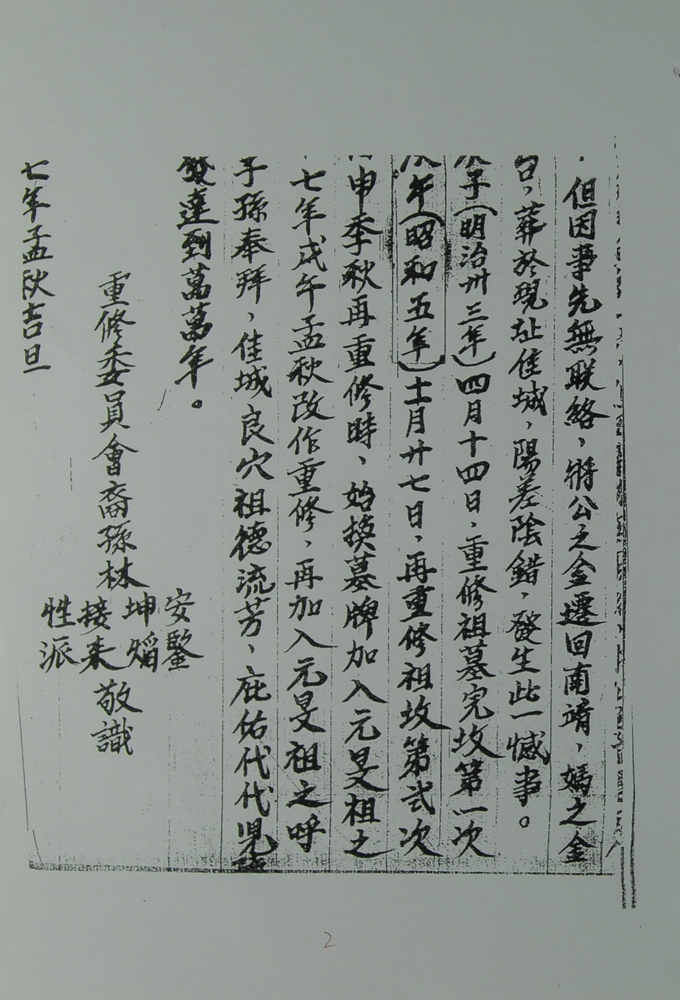 但因事先無聯絡，將公之金遷回南靖，媽之金
，葬於現址佳城，陽差陰錯，發生此一憾事。
子(明治卅三年)四月十四日，重修祖墓完坟第一次
午(昭和五年)十二月廿七日，再重修祖坟第弍次
申季秋再重修時，始換墓牌加入元旻祖之
七年戊午孟秋改作重修，再加入元旻祖之呼
子孫奉拜，佳城良穴祖德流芳，庇佑代代兒孫
發達到萬萬年。
重修委員會裔孫林
安鋻
坤熖
接來
性派
敬識
七年孟秋吉旦
2